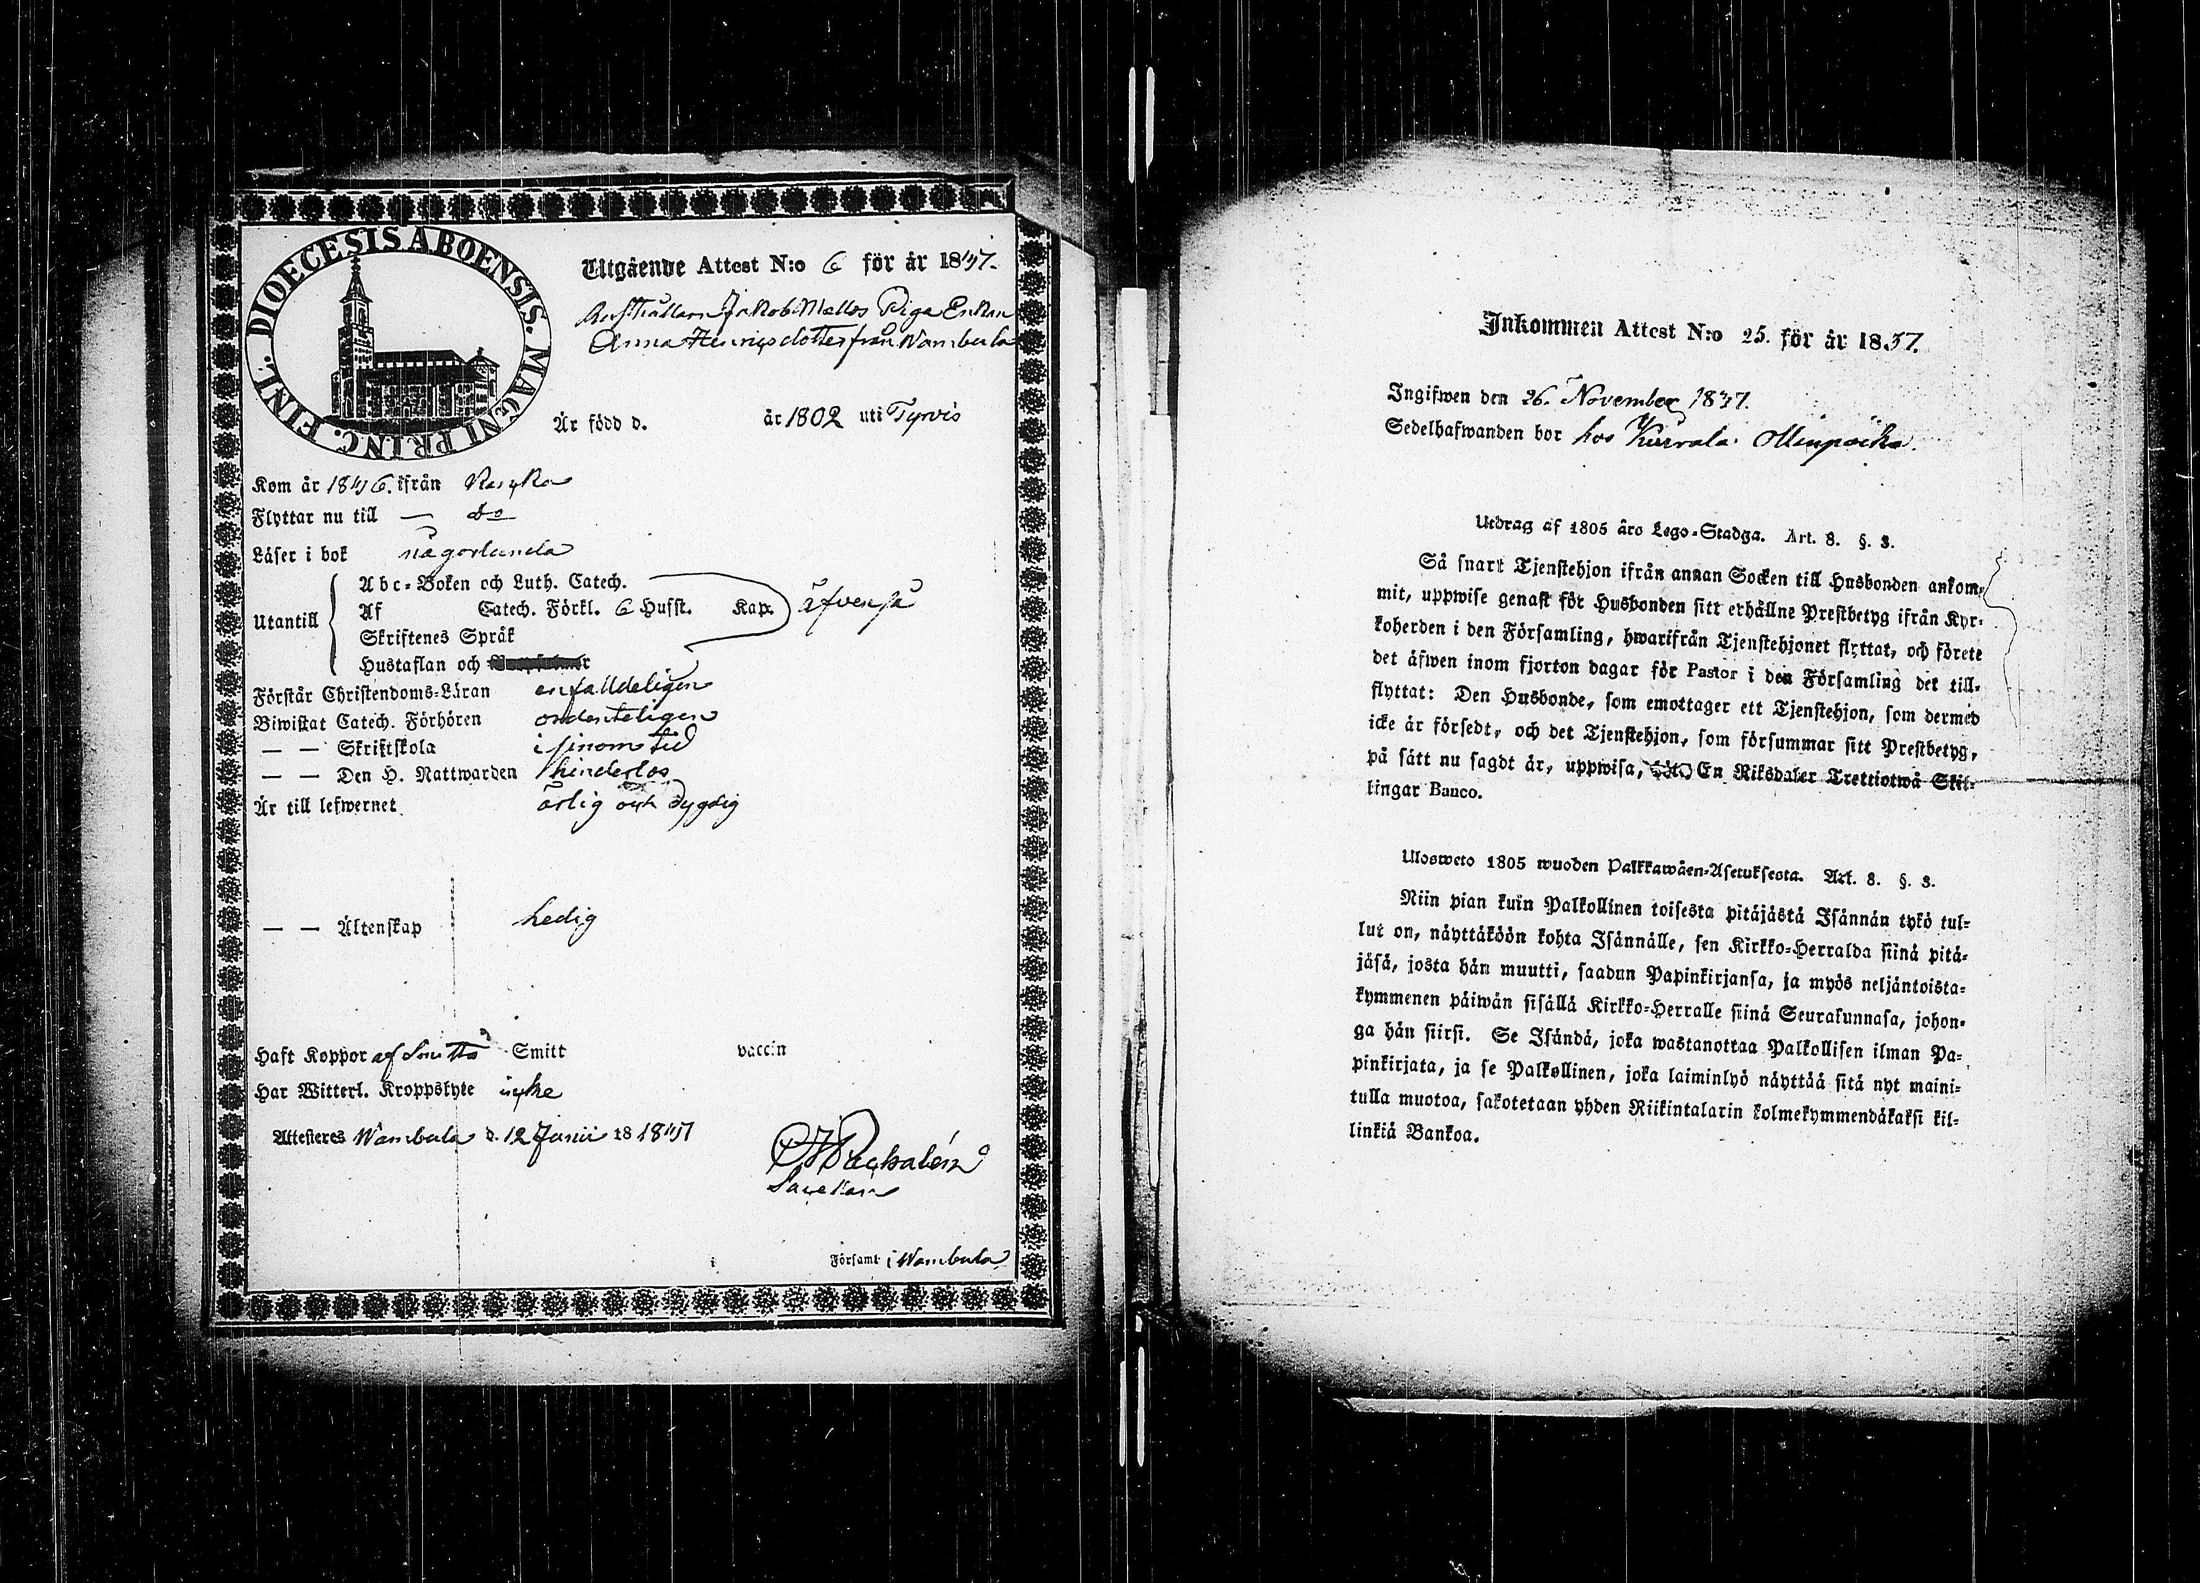 DIOECESIS ABOENSIS. MAGNI PRINC. FINL.
Utgående Attest N:o 6 för år 1847.
Jakob Mellos Piga Enkan
Anna Henricsdotter från Wambula
Är född d. år 1802 uti Tyrvis
Kom år 1846. ifrån
Flyttar nu till — do
Läser i bok någorlunda
Utantill
Abc-Boken och Luth. Catech.
Af Catech. Förkl. 6 Hufst. Kap. äfvenså
Skriftenes Språk
Hustaflan och
Förstår Christendoms-Läran enfalldeligen
Biwistat Catech. Förhören ordenteligen
— — Skriftskola i sinom tid
— — Den H. Nattwarden hinderlös
Är till lefwernet ärlig och dygdig
— — Ältenskap ledig
Haft Koppor af Smitta Smitt vaccin
Har Witterl. Kroppslyte icke
Attesteres Wambula d. 12 Junii 18 1847
Sacellan
Församl i Wambula
Inkommen Attest N:o 25. för år 1847.
Ingifwen den 26. November 1847.
Sedelhafwanden bor hos
Utdrag af 1805 års Lego-Stadga. Art. 8. §. 3.
Så snart Tjenstehjon ifrån annan Socken till Husbonden ankom-
mit, uppwise genast för Husbonden sitt erhållne Prestbetyg ifrån Kyr-
koherden i den Församling, hwarifrån Tjenstehjonet flyttat, och förete
det äfwen inom fjorton dagar för Pastor i den Församling det till-
flyttat: Den Husbonde, som emottager ett Tjenstehjon, som dermed
icke är försedt, och det Tjenstehjon, som försummar sitt Prestbetyg,
på sätt nu sagdt är, uppwisa, En Riksdaler Trettiotwå Skil-
lingar Banco.
Ulosweto 1805 wuoden Palkkawäen-Asetuksesta. Art. 8. §. 3.
Niin pian kuin Palkollinen toisesta pitäjästä Isännän tykö tul-
lut on, näyttäköön kohta Isännälle, sen Kirkko-Herralda siinä pitä-
jäsä, josta hän muutti, saadun Papinkirjansa, ja myös neljäntoista-
kymmenen päiwän sisällä Kirkko-Herralle siinä Seurakunnasa, johon-
ga hän siirsi. Se Isändä, joka wastanottaa Palkollisen ilman Pa-
pinkirjata, ja se Palkollinen, joka laiminlyö näyttää sitä nyt maini-
tulla muotoa, sakotetaan yhden Riikintalarin kolmekymmendäkaksi kil-
linkiä Bankoa.